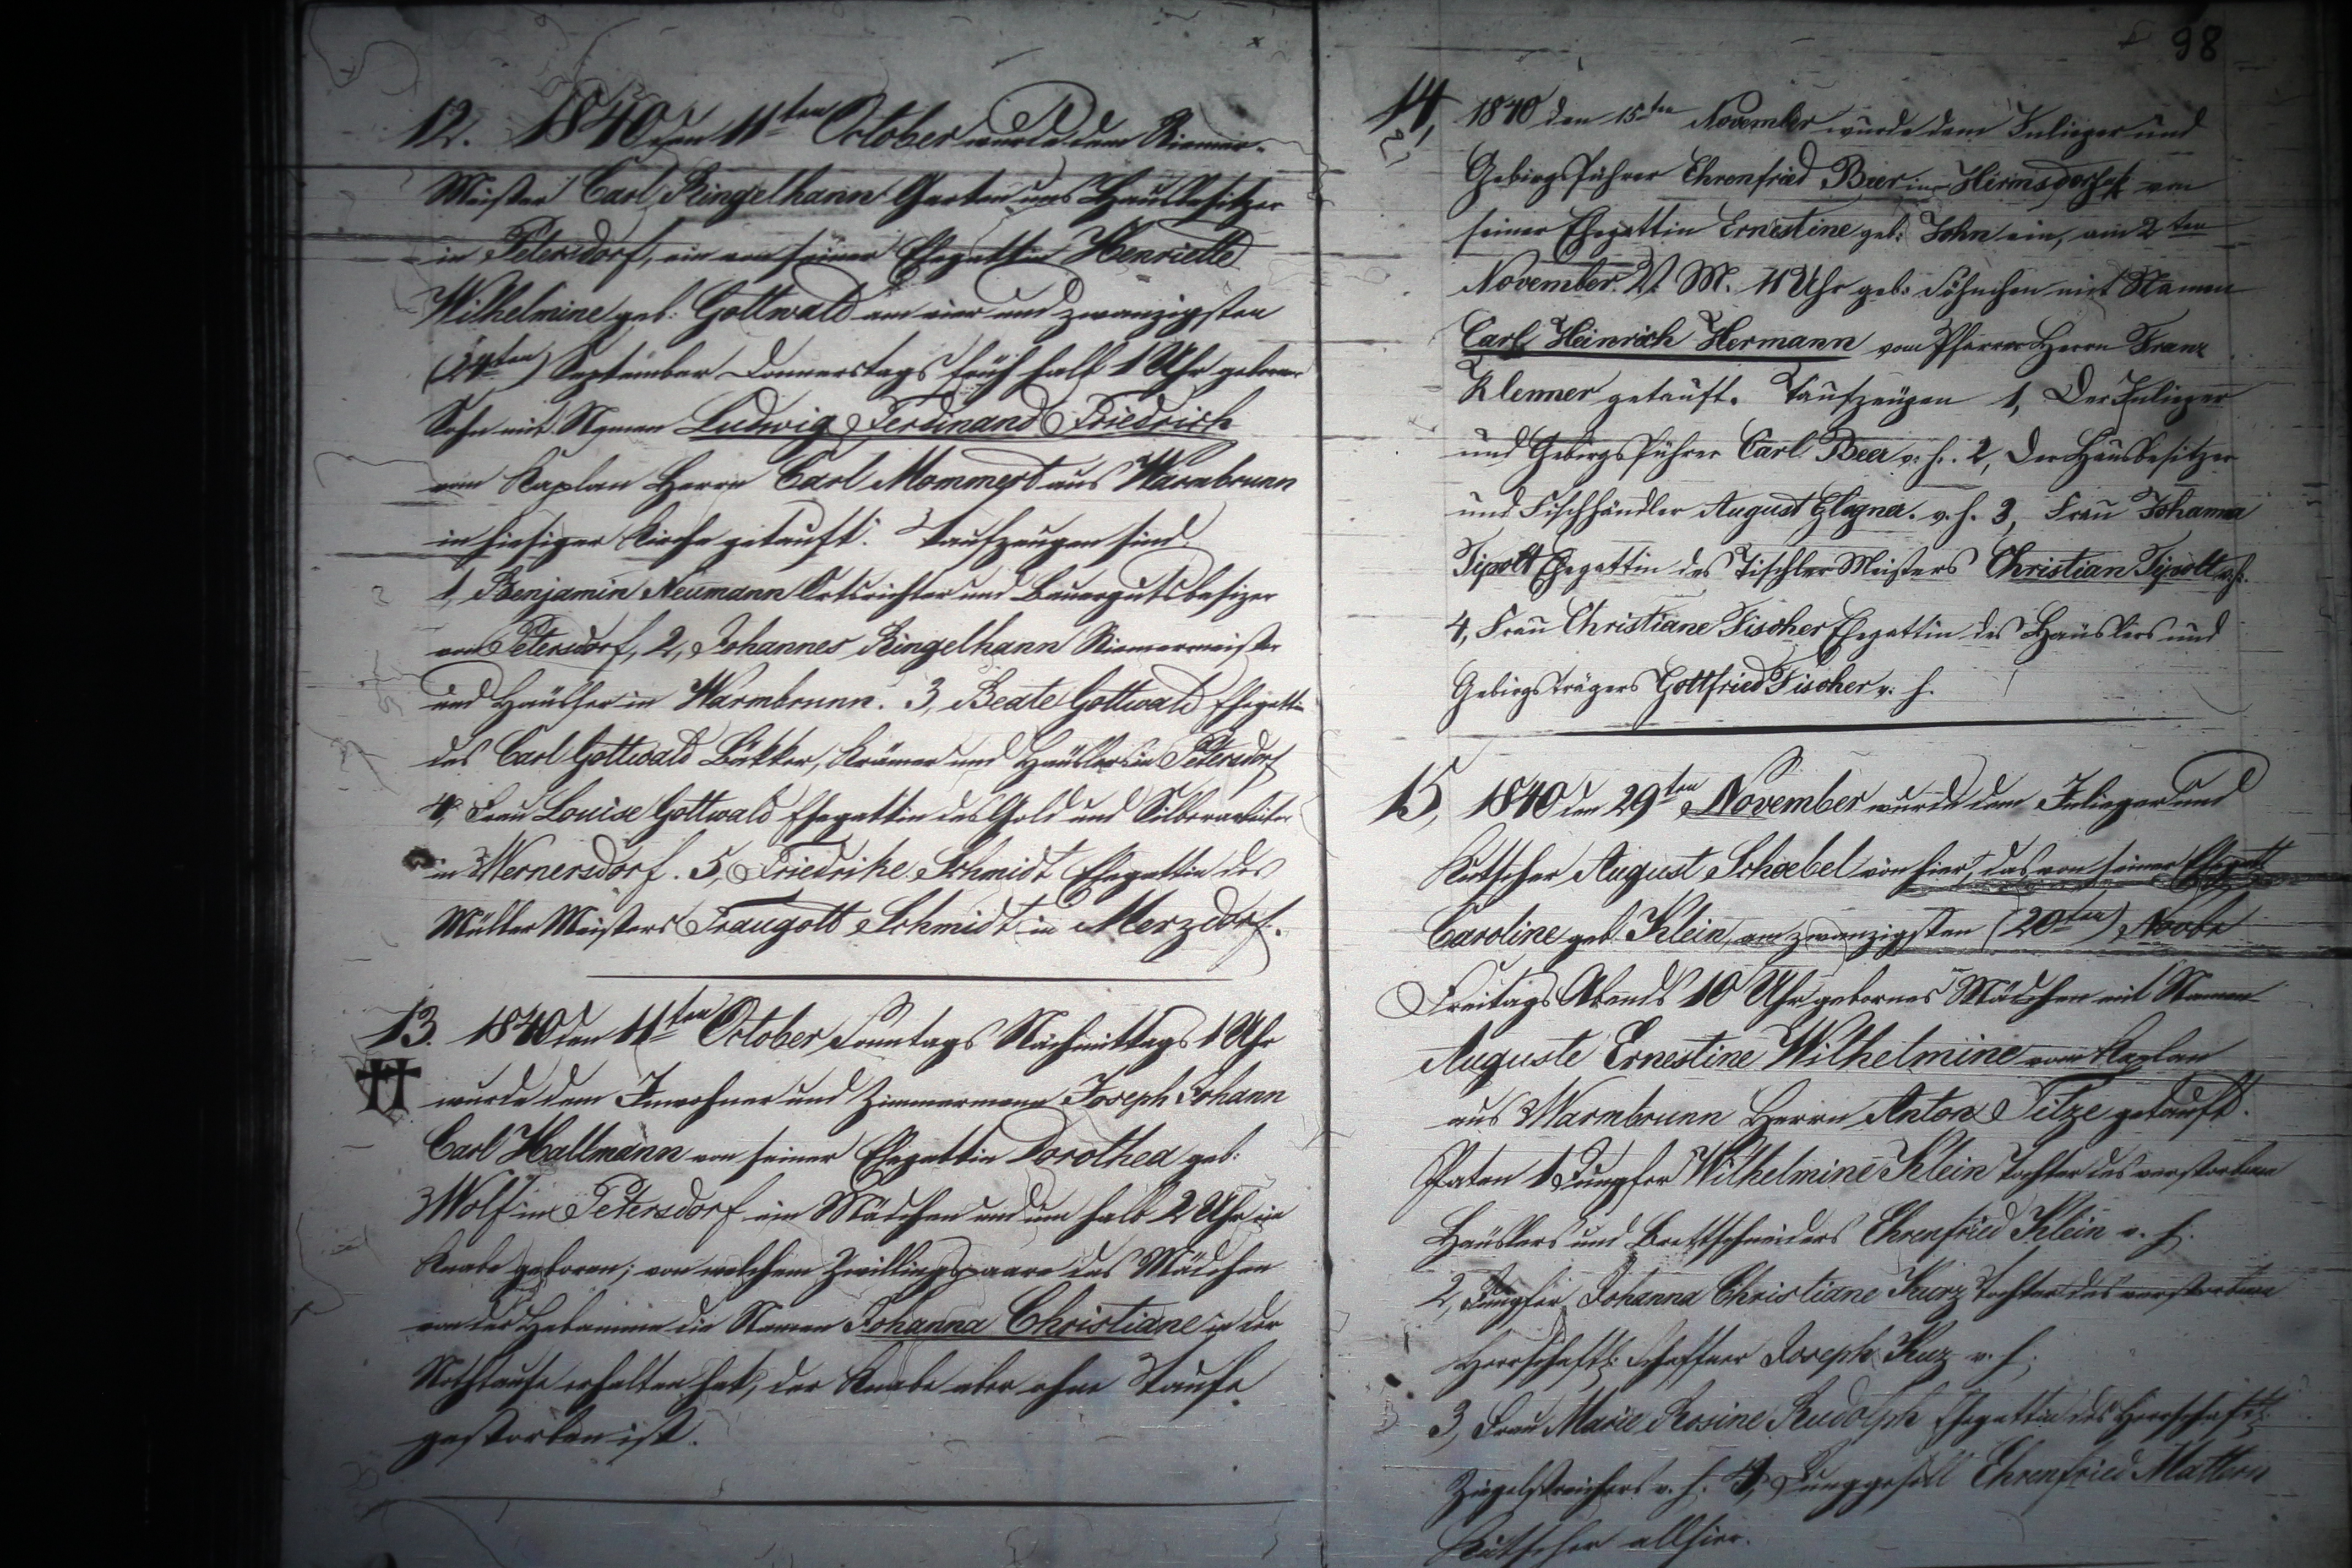 12. 1840 den 11ten October wurde dem Riemer-
Meister Carl Ringelhann Garten und Hausbesitzer
in Petersdorf, ein von seiner Ehegattin Henriette
Wilhelmine geb: Gottwald am vier und zwanzigsten
(24ten) September Donnerstags früh halb 1 Uhr geborner
Sohn mit Namen Ludwig Ferdinand Friedrich
vom Kaplan Herrn Carl Mommert aus Warmbrunn
in hiesiger Kirche getauft. Taufzeugen sind.
1, Benjamin Neumann Ortsrichter und Bauergutsbesizer
von Petersdorf, 2, Johannes Ringelhann Riemermeister
und Häusler in Warmbrunn. 3, Beate Gottwald Ehegattin
des Carl Gottwald Bäkker, Krämer und Häusler in Petersdorf
4, Frau Louise Gottwald Ehegattin des Gold und Silberarbeiter
in Wernersdorf. 5, Friedrike Schmidt Ehegattin des
Müller Meisters Traugott Schmidt in Merzdorf.
13. 1840 den 11ten October Sonntags Nachmittags 1 Uhr
wurde dem Inwohner und Zimmermann Joseph Johann
Carl Hallmann von seiner Ehegattin Dorothea geb:
Wolf in Petersdorf ein Mädchen und um halb 2 Uhr ein
Knabe geboren; von welchem Zwillingspaare das Mädchen
von der Hebamme die Namen Johanna Christiane in der
Nothtaufe erhalten hat, der Knabe aber ohne Taufe
gestorben ist.
98
14, 1840 den 15ten November wurde dem Inlieger und
Gebirgsführer Ehrenfried Beer in Hermsdorf von
seiner Ehegattin Ernestine geb: John ein, am 2ten
November V. M. 11 Uhr geb: Söhnchen mit Namen
Carl Heinrich Hermann vom Pfarrer Herrn Franz
Klenner getauft. Taufzeugen 1, Der Inlieger
und Gebirgsführer Carl Beer v. h. 2, Der Hausbesitzer
und Fischhändler August Glogner. v. h. 3, Frau Johanna
Tipolt Ehegattin des Tischler Meisters Christian Tipolt v. h.
4, Frau Christiane Fischer Ehegattin des Häuslers und
Gebirgsträgers Gottfried Fischer v. h.
15, 1840 den 29ten November wurde dem Inlieger und
Kutscher August Schoebel von hier, das von seiner Ehegatt
Caroline geb Klein, am zwanzigsten (20ten) Novbr
Freitags Abends 10 Uhr gebornes Mädchen mit Namen
Auguste Ernestine Wilhelmine vom Kaplan
aus Warmbrunn Herrn Anton Titze getauft.
Paten 1 Jungfer Wilhelmine Klein Tochter des verstorbnen
Häuslers und Brettschneiders Ehrenfried Klein v. h.
2, Jungfer Johanna Christiane Kurz Tochter des verstorbnen
Herrschaftl: Schaffner Joseph Kuz v. h.
3, Frau Marie Rosine Rudolph Ehegattin des Herrschaftl:
Ziegelstreichers v. h. 4, Junggesell Ehrenfried Mattern
Kutscher allhier.